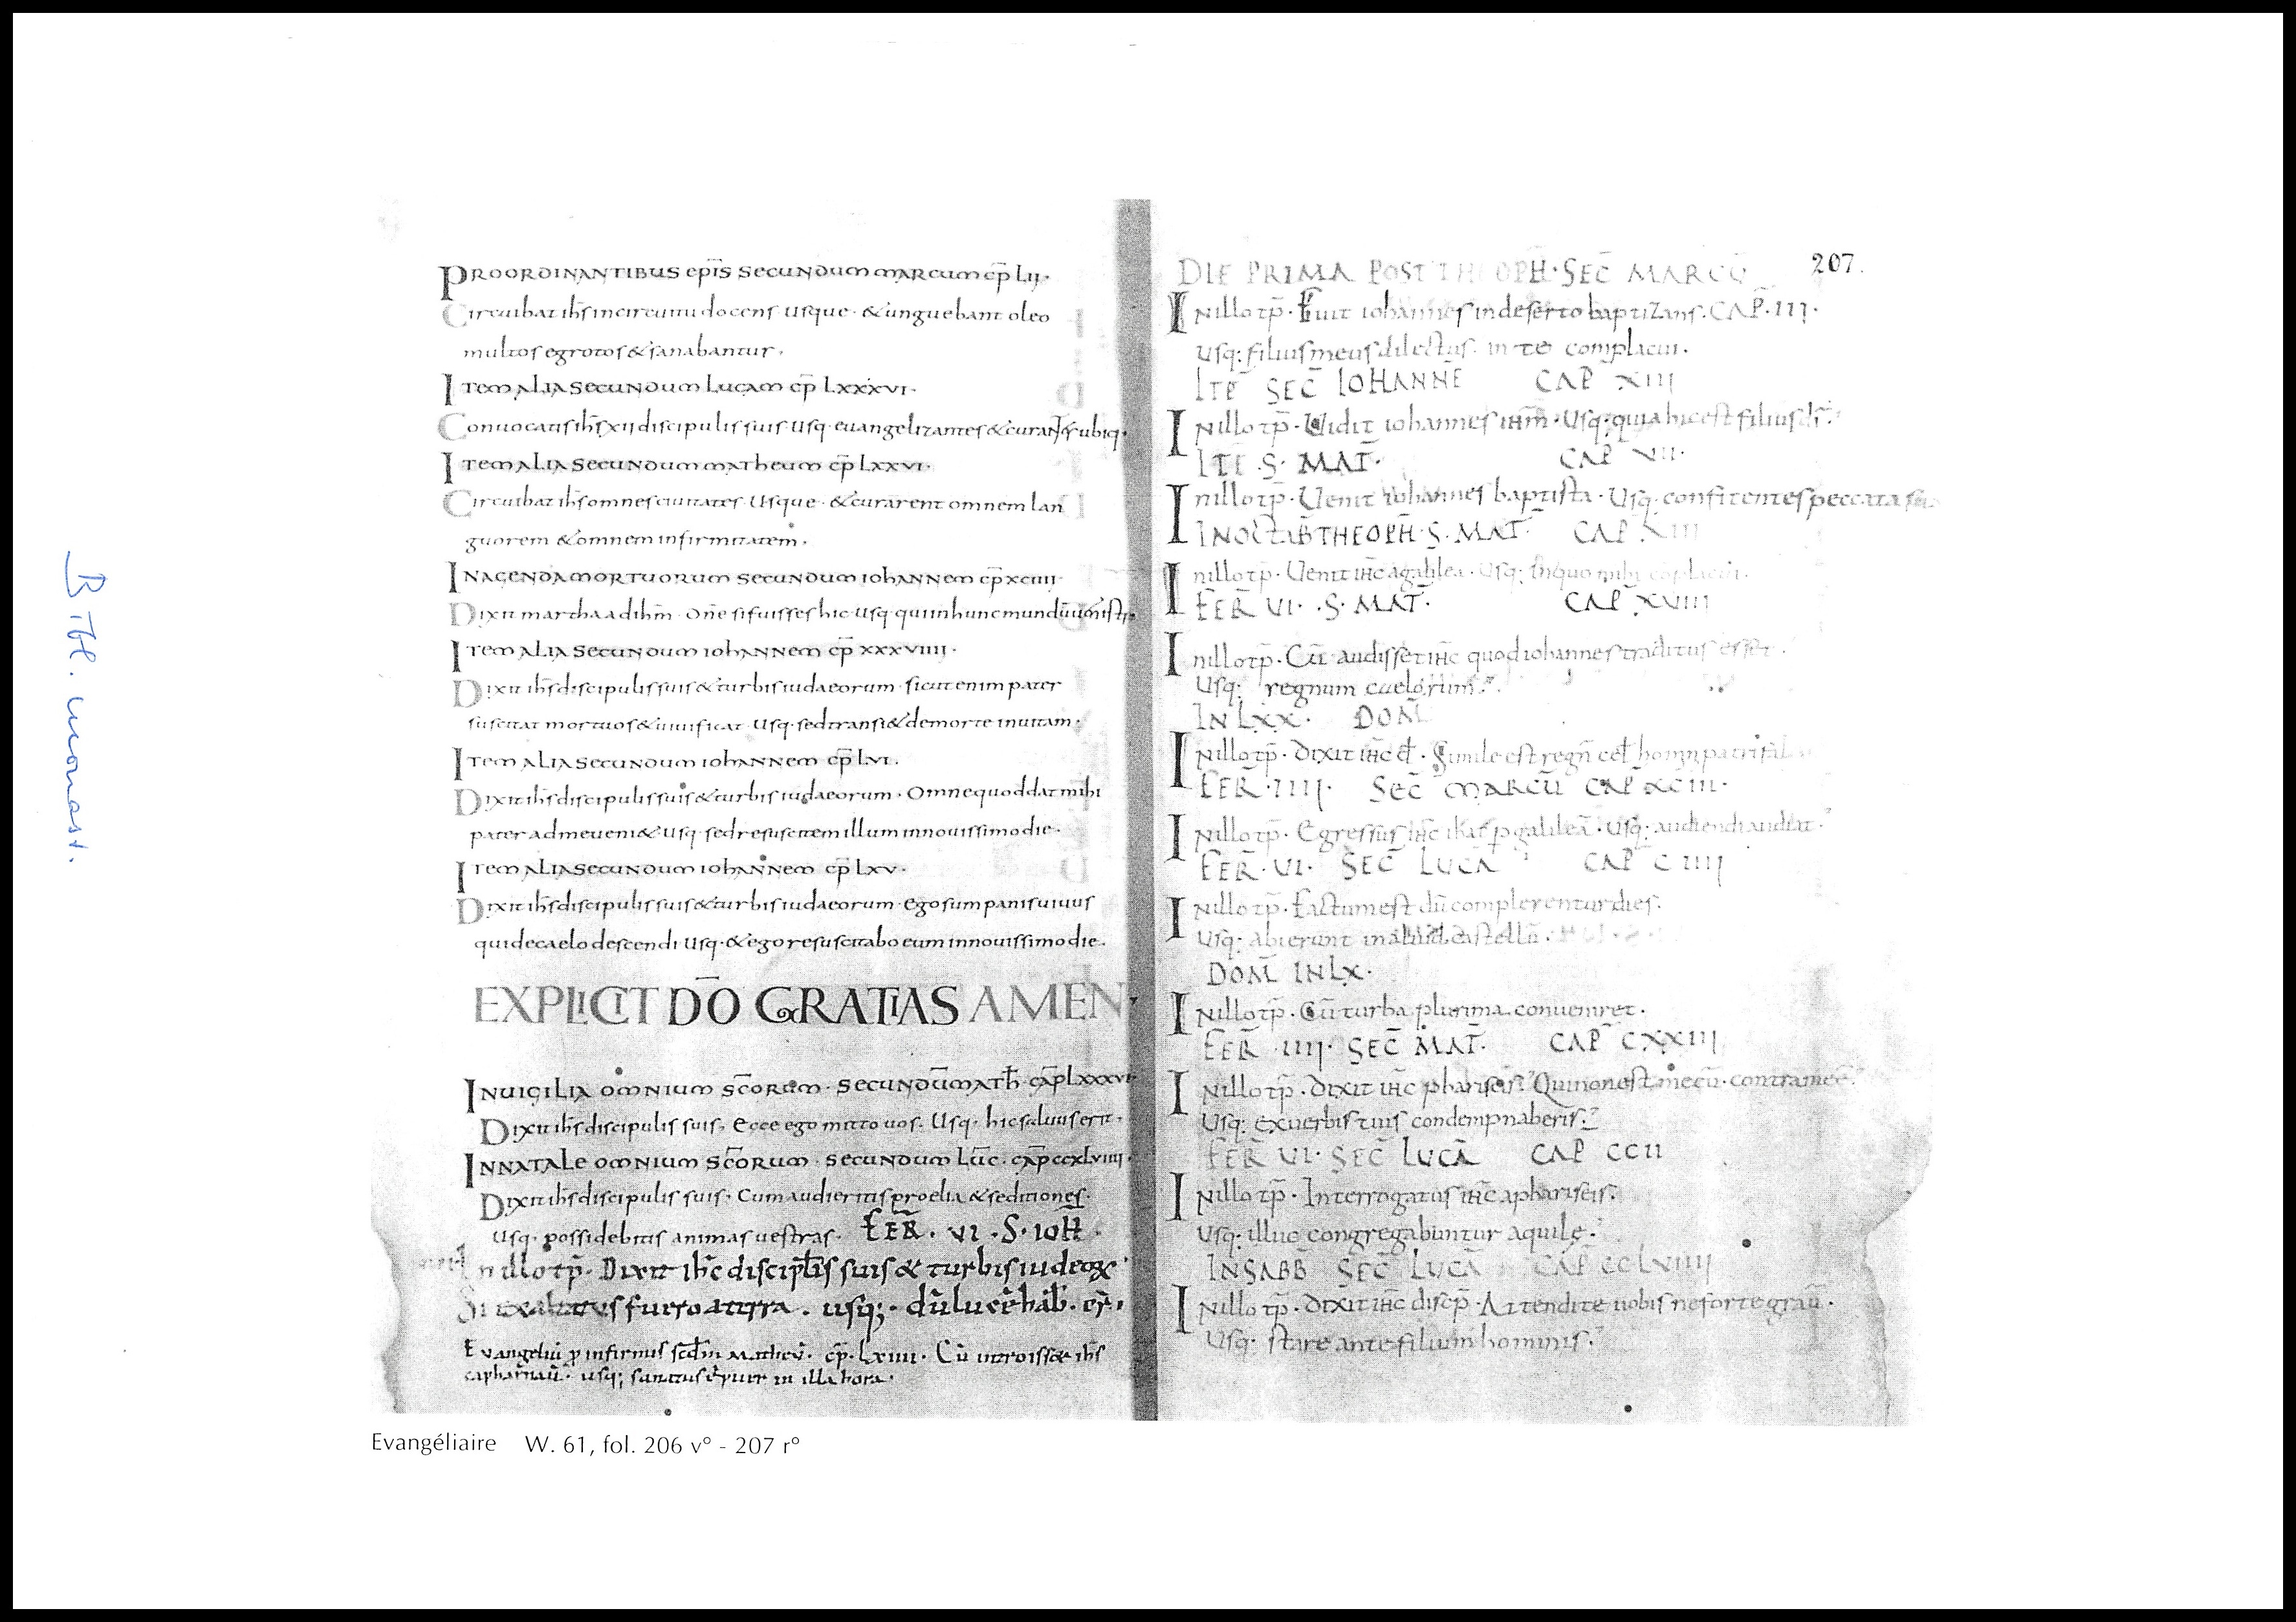 PRO ORDINANTIBUS ep̅is secundum marcum cp̅ lii·
Circuibat ih̅s in circuitu docens usque · & unguebant oleo
multos egrotos & sanabantur.
Item alia secundum lucam cp̅ lxxxvi·
Conuocatis ih̅s xii discipulis suis usq· euangelizantes & curantes ubiq·
Item alia secundum matheum cp̅ lxxvi·
Circuibat ih̅s omnes ciuitates · Usque · & curarent omnem lan
guorem & omnem infirmitatem.
IN AGENDA mortuorum secundum iohannem cp̅ xciiii
Dixit martha ad ih̅m · Dn̅e si fuisses hic usq· qui in hunc mundū uenisti·
Item alia secundum iohannem cp̅ xxxviiii·
Dixit ih̅s discipulis suis & turbis iudaeorum · sicut enim pater
suscitat mortuos & uiuificat usq· sed transi& de morte in uitam·
Item alia secundum iohannem cp̅ lvi.
Dixit ih̅s discipulis suis & turbis iudaeorum · Omne quod dat mihi
pater ad me ueni& usq· sed resuscitem illum in nouissimo die·
Item alia secundum iohannem cp̅ lxv·
Dixit ih̅s discipulis suis & turbis iudaeorum · ego sum panis uiuus
qui de caelo descendi usq· & ego resuscitabo eum in nouissimo die.
EXPLICIT DO̅ GRATIAS AMEN·
IN UIGILIA omnium sc̅orum · secundū math̅ · cap̅ lxxxvi
Dixit ih̅s discipulis suis, Ecce ego mitto uos. Usq· hic saluus erit·
IN NATALE omnium sc̅orum · secundum luc̅ · cap̅ ccxlviiii·
Dixit ih̅s discipulis suis · Cum audieritis proelia & seditiones·
usq· possidebitis animas uestras· FER̅ · VI · S· IOH̅ ·
In illo tp̅· Dixit ih̅c discipłis suis & turbis iudeoꝝ
Si exaltatus fuero a terra . usq; · dū lucē hab̅·
Euangeliū ꝓ infirmis matheū· cp̅· lxiiii· Cū introiss& ih̅s
capharnaū· usq; sanatus ē puer in illa hora·
DIE PRIMA POST THEOPH̅· SEC̅ MARCŪ 207.
In illo tp̅· Fuit iohannes in deserto baptizans. CAP̅· III·
Usq: filius meus dilectus· in te complacui.
ITE̅ SEC̅ IOHANNE̅ CAP̅ XIII
In illo tp̅· Uidit iohannes ihm̅· Usq· quia hic est filius dī·
ITE̅ S· MAT̅· CAP̅ VII·
In illo tp̅· Uenit iohannes baptista · Usq· confitentes peccata sua
IN OCTAB̅ THEOPH̅· S· MAT̅· CAP̅ XIII
In illo tp̅· Uenit ih̅c a galilea · Usq: In quo mihi cōplacui·
FER̅ VI· S· MAT̅· CAP̅ XVIII
In illo tp̅· Cū audisset ih̅c quod iohannes traditus esset·
Usq: regnum caelorum·
IN LXX· DOM̅
In illo tp̅· Dixit ih̅c · Simile est regn̅ cel̅ homini patrifał
FER̅· IIII· SEC̅ MARCŪ CAP̅ XCIII·
In illo tp̅· Egressus ih̅c galileā· Usq: audiendi audiat·
FER̅· VI· SEC̅ LUCA̅ CAP̅ C IIII
In illo tp̅· Factum est dū complerentur dies·
Usq: abierunt in aliud castellū·
DOM̅ IN LX·
In illo tp̅· Cū turba plurima conueniret·
FER̅ IIII· SEC̅ MAT̅· CAP̅ CXXIII
In illo tp̅· Dixit ih̅c phariseis· Qui non est mecū· contra me ē·
Usq: Ex uerbis tuis condempnaberis·
FER̅ VI· SEC̅ LUCA̅ CAP̅ CCII
In illo tp̅· Interrogatus ih̅c a phariseis·
Usq: illuc congregabuntur aquile·
IN SABB̅ SEC̅ LUCA̅ CAP̅ CCLVIIII
In illo tp̅· Dixit ih̅c discp̅· Attendite uobis ne forte grau̅·
Usq: stare ante filium hominis·
Evangéliaire W. 61, fol. 206 v° - 207 r°
Bibl. monast.